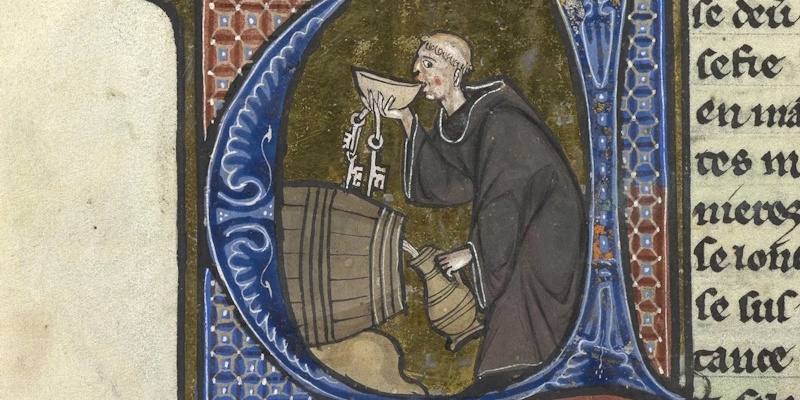 se deu
sefie
en ma
tes m
nieres
se lonc
se sus
tance